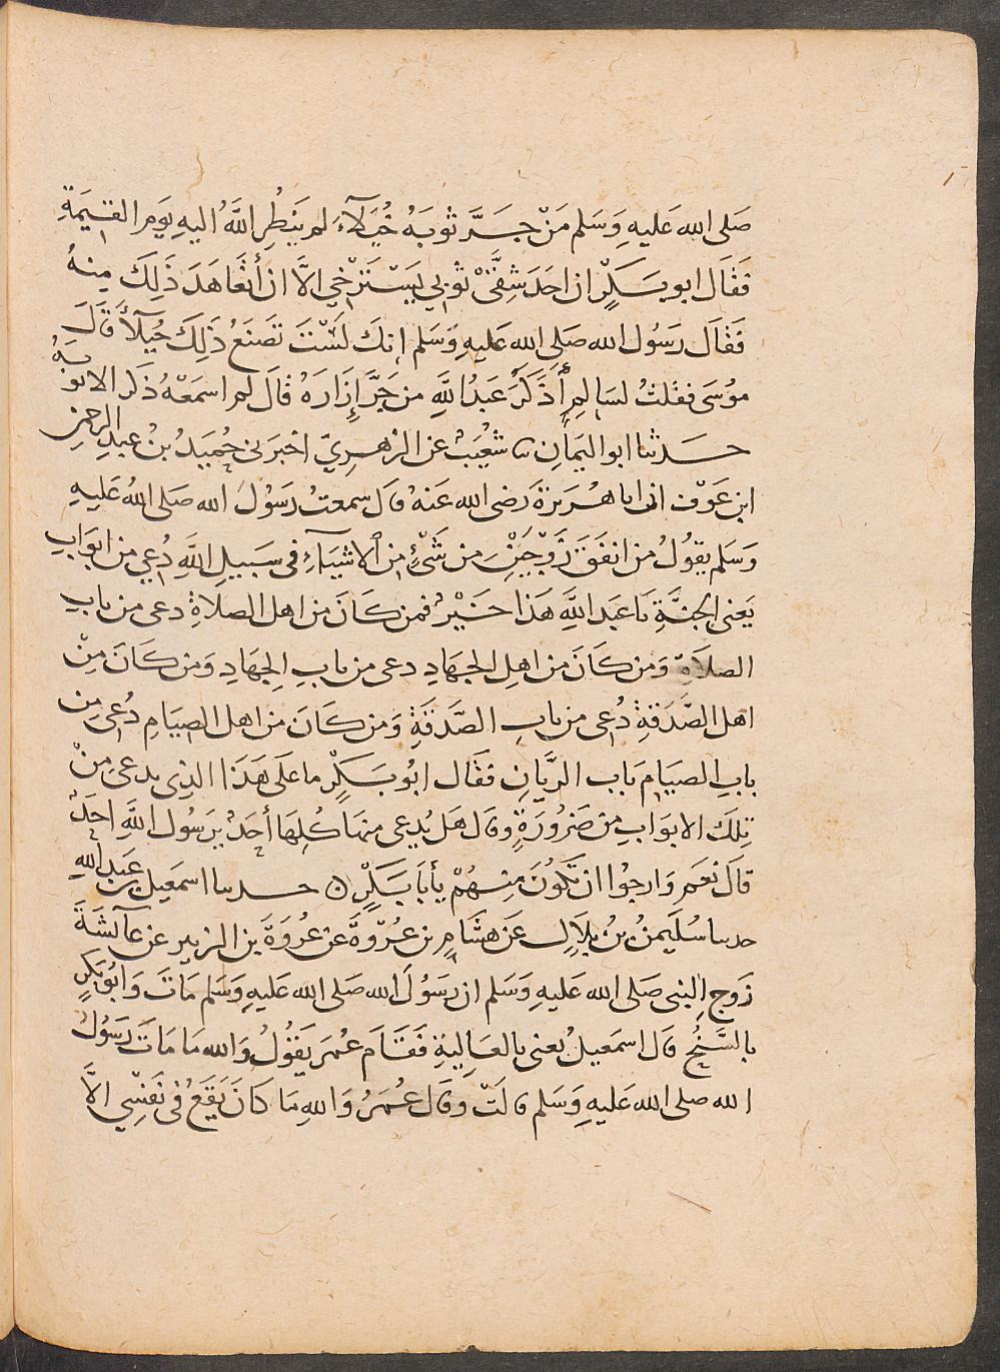 صَلى الله عَليهِ وَسَلم مَنْ جَرَّ ثوبَهُ خُيَلَآءَ لم يَنظُرِ اللَّهُ اليهِ يَومَ القيَمَةِ
فَقَال ابو بَكرٍ ان احَدَ شِقَّيْ ثوبي يَسْتَرْخي الَّا ان أتَعَاهَدَ ذَلِكَ مِنهُ
فَقَالَ رَسُول الله صَلى الله عَليهِ وَسَلم انكَ لَسْتَ تصَنَعُ ذَلِكَ خُيَلآً قَالَ
موُسَى فقلتُ لسَالمٍ أَذَكَرَ عَبدُ اللَّهِ من جَرَّ إِزَارَهُ قَالَ لم اسمَعْهُ ذَكَر الا ثوبَهُ
حَدثنا ابو اليَمَانِ نا شعُيَبٌ عن الزهرِيّ اخبرَنى حُمَيدُ بنُ عَبدِ الرحمنِ
ابن عَوْفٍ ان ابا هُرَيرَةَ رَضى الله عَنهُ قالَ سمعتُ رَسُولَ الله صَلى اللهُ عَليهِ
وَسَلم يقوُلُ من انفَقَ زَوْجَيْنِ من شَىْءٍ من الاشيَآءِ فى سَبيلِ اللَّهِ دُعِي من ابوَابِ
يَعنى الجنَّةِ يَا عَبدَ اللَّهِ هَذا خَيْرٌ فمن كَانَ من اهل الصلاةِ دعى من بابِ
الصلاَةِ وَمَن كَانَ من اهلِ الجهَادِ دعى من بابِ الجِهَادِ وَمَن كَانَ مِنْ
اهل الصَّدَقةِ دُعى من بابِ الصَّدَقَةِ وَمَن كَانَ من اهل الصيَامِ دُعىَ من
بابِ الصيَامِ بَاب الريَّانِ فقَال ابُو بَكرٍ ما علَى هَذَا الذِى يدعىَ مِنْ
تِلكَ الابوَابِ مِن ضَرُورَةٍ وقالَ هَل يُدعى منهَا كُلِهَا أحَدٌ يرَسُول اللَّهِ احَدٌ
قالَ نَعَم وَارجُوا ان تَكوُنَ مِنهُمْ يأبَا بَكرٍ ن حدثنا اسمَعيل بن عَبد اللهِ
حدثنا سُلَيمنُ بنُ بِلاَلٍ عَن هشَامِ بن عُرْوَةَ عن عُروَةَ بن الزبير عن عآئشَةَ
زَوج النبى صَلى الله عَليهِ وَسَلم ان رَسَوُلَ الله صَلى الله عَليهِ وَسَلم مَاتَ وَابُو بَكرٍ
بالسُّنْحِ قال اسمَعيلُ يُعنى بالعَاليةِ فَقَامَ عُمَر يَقوُلُ وَالله مَا مَاتَ رَسَوُلُ
الله صلى الله عَليهِ وَسَلم قالَتْ وقالَ عُمَرُ وَاللهِ مَا كَانَ يَقَعُ فى نَفسِي الَّا